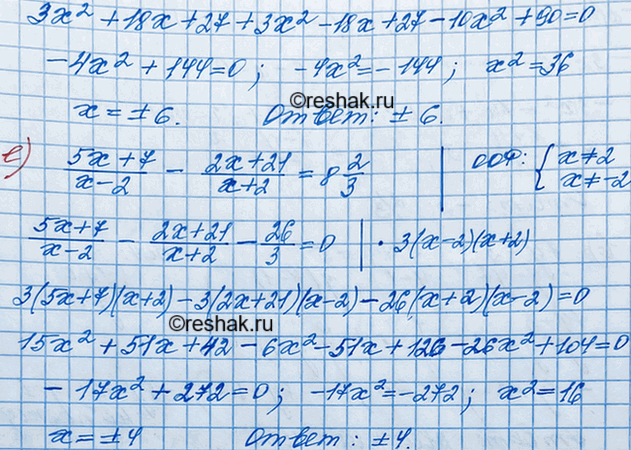 3x² + 18x + 27 + 3x² - 18x + 27 - 10x² + 90 = 0
-4x² + 144 = 0; -4x² = -144; x² = 36
©reshak.ru
x = ± 6. Ответ: ± 6.
е) (5x+7)/(x-2) - (2x+21)/(x+2) = 8 2/3 | ООФ: { x ≠ 2 x ≠ -2
(5x+7)/(x-2) - (2x+21)/(x+2) - 26/3 = 0 | · 3(x-2)(x+2)
3(5x+7)(x+2) - 3(2x+21)(x-2) - 26(x+2)(x-2) = 0
©reshak.ru
15x² + 51x + 42 - 6x² - 51x + 126 - 26x² + 104 = 0
- 17x² + 272 = 0; -17x² = -272; x² = 16
x = ± 4 Ответ: ± 4.